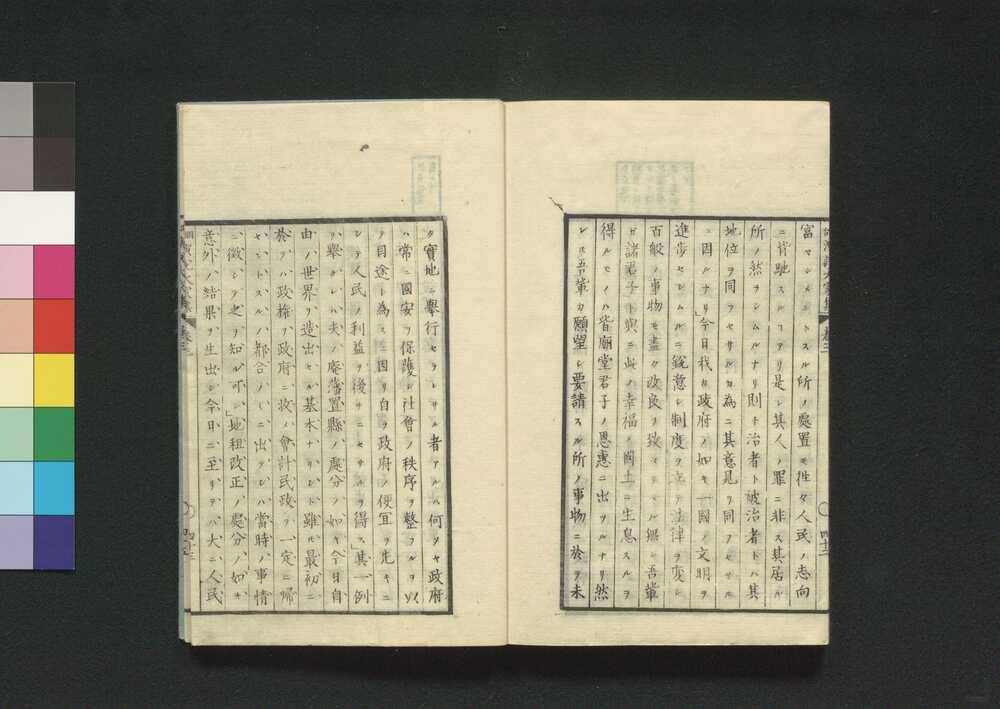 富マシメントスル所ノ處置モ徃々人民ノ志向
ニ背馳スルアリ是レ其人ノ罪ニ非ス其居ル
所ノ然ラシムルナリ則チ治者ト被治者トハ其
地位ヲ同フセサルカ為ニ其意見ヲ同フセサル
ニ因ルナリ」今日我カ政府ノ如キ一國ノ文明ヲ
進歩セシムルニ鋭意シ制度ヲ立テ法律ヲ変シ
百般ノ事物モ盡ク改良ヲ致サヽル無シ吾輩
カ諸君子ト與ニ此ノ幸福ノ國土ニ生息スルヲ
得ルモノハ皆廟堂君子ノ恩惠ニ出ヲルナリ然
レハ吾輩カ願望シ要請スル所ノ事物ニ於テ未
タ實地ニ擧行セラレサル者アルハ何ソヤ政府
ハ常ニ國安ヲ保護シ社會ノ秩序ヲ整フルヲ以
テ目途ト為スニ因リ自ラ政府ノ便宜ヲ先キニ
シテ人民ノ利益ヲ後ニセサルヲ得ス」其一例
ヲ擧クレハ夫ノ廢藩置縣ノ處分ノ如キ今日自
由ノ世界ヲ造出セル基本ナリシト雖ル最初ニ
於テハ政權ヲ政府ニ收メ會計民政ヲ一定ニ歸
セントスルノ都合ノミニ出テシハ當時ノ事情
ニ徴シテ之ヲ知ル可シ」地租改正ノ處分ノ如キ
意外ノ結果ヲ生出シ今日ニ至リテハ大ニ人民
卷三
四十三